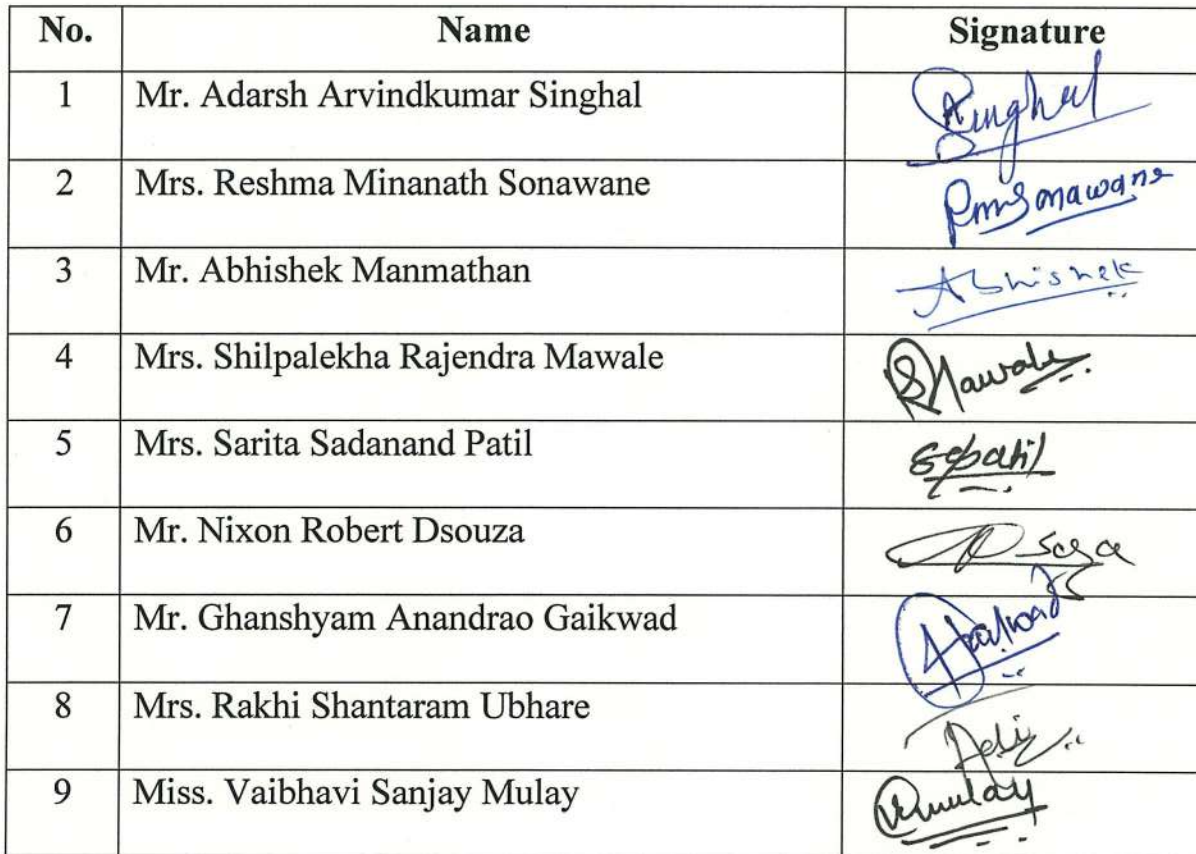 No. Name Signature
1 Mr. Adarsh Arvindkumar Singhal Singhal
2 Mrs. Reshma Minanath Sonawane RMSonawane
3 Mr. Abhishek Manmathan Abhishek
4 Mrs. Shilpalekha Rajendra Mawale SMawale
5 Mrs. Sarita Sadanand Patil SSPatil
6 Mr. Nixon Robert Dsouza
7 Mr. Ghanshyam Anandrao Gaikwad
8 Mrs. Rakhi Shantaram Ubhare
9 Miss. Vaibhavi Sanjay Mulay Vmulay